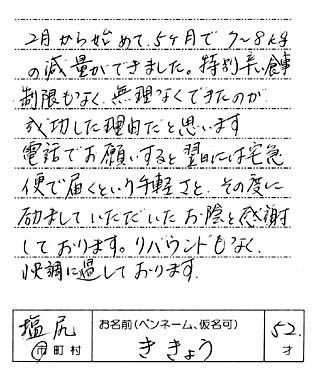 2月から始めて、5ヶ月で7〜8kg
の減量ができました。特別辛い食事
制限もなく、無理なくできたのが
成功した理由だと思います
電話でお願いすると翌日には宅急
便で届くという手軽さと、その度に
励ましていただいたお陰と感謝
しております。リバウンドもなく、
快調に過しております。
塩尻 市町村 お名前(ペンネーム、仮名可) ききょう 52. 才